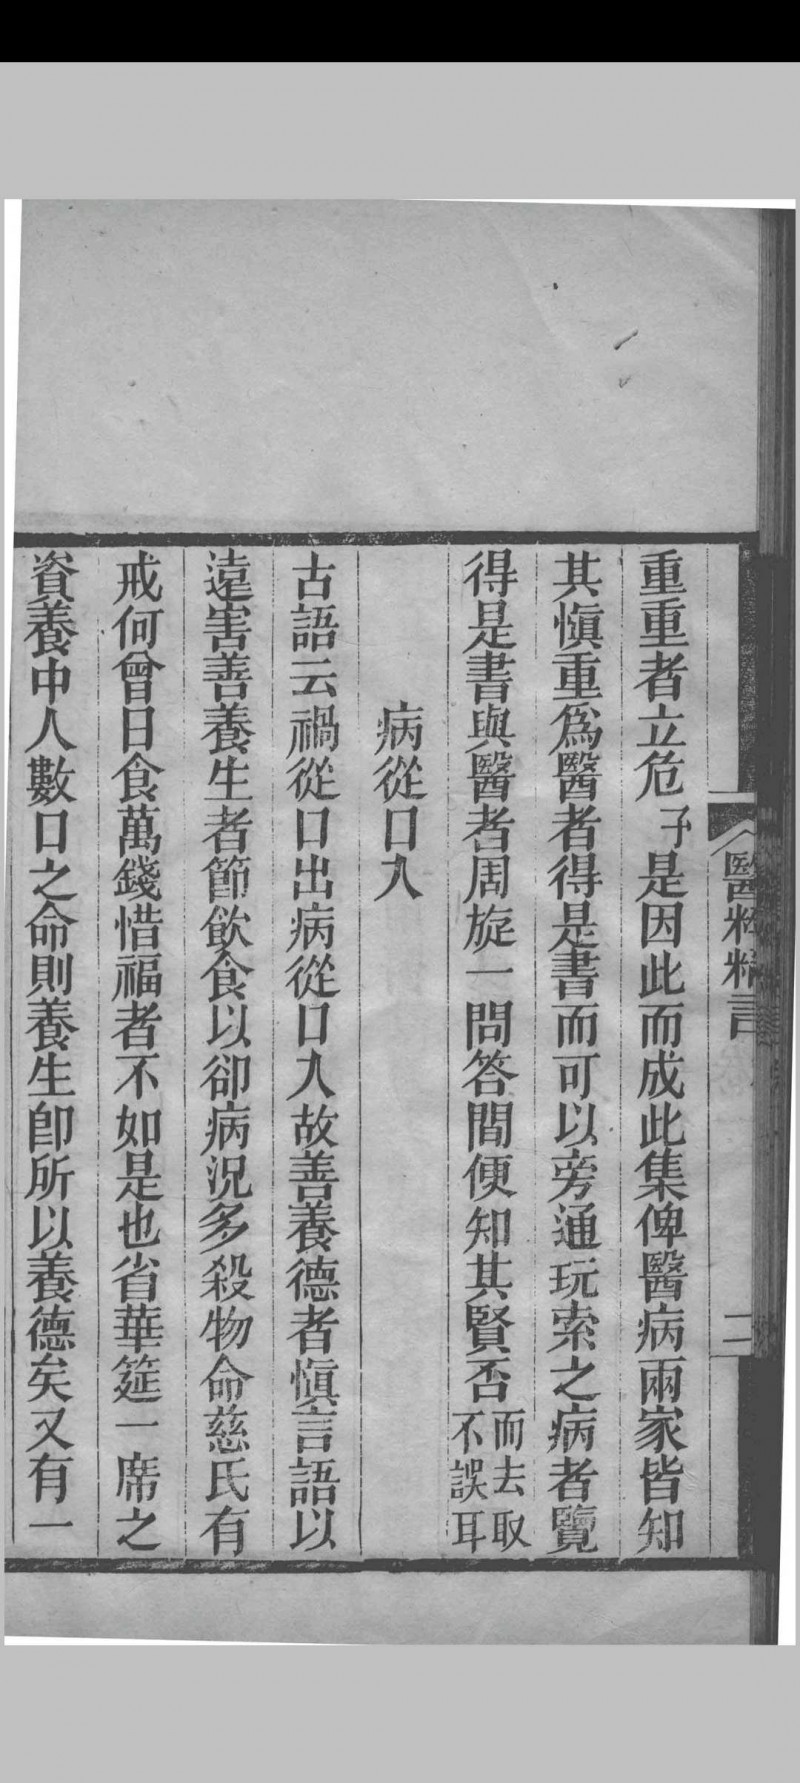 醫粹精言
二
重重者立危子是因此而成此集俾醫病兩家皆知
其愼重爲醫者得是書而可以旁通玩索之病者覽
得是書與醫者周旋一問答間便知其賢否而去取不誤耳
病從口入
古語云禍從口出病從口入故善養德者愼言語以
遠害善養生者節飲食以卻病況多殺物命慈氏有
戒何曾日食萬錢惜福者不如是也省華筵一席之
資養中人數口之命則養生卽所以養德矣又有一